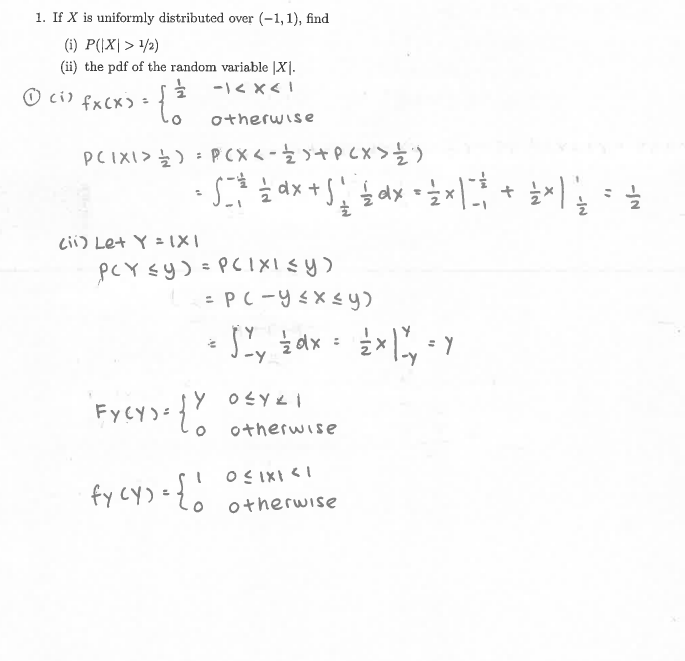 1. If X is uniformly distributed over (−1, 1), find
(i) P(|X| > 1/2)
(ii) the pdf of the random variable |X|.
① (i) fx(x) = { 1/2 -1 < x < 1
0 otherwise
P(|X| > 1/2) = P(X < -1/2) + P(X > 1/2)
= ∫_{-1}^{-1/2} 1/2 dx + ∫_{1/2}^{1} 1/2 dx = 1/2 x |_{-1}^{-1/2} + 1/2 x |_{1/2}^{1} = 1/2
(ii) Let Y = |X|
P(Y ≤ y) = P(|X| ≤ y)
= P(-y ≤ x ≤ y)
= ∫_{-y}^{y} 1/2 dx = 1/2 x |_{-y}^{y} = y
Fy(y) = { y 0 ≤ y < 1
0 otherwise
fy(y) = { 1 0 ≤ |x| < 1
0 otherwise